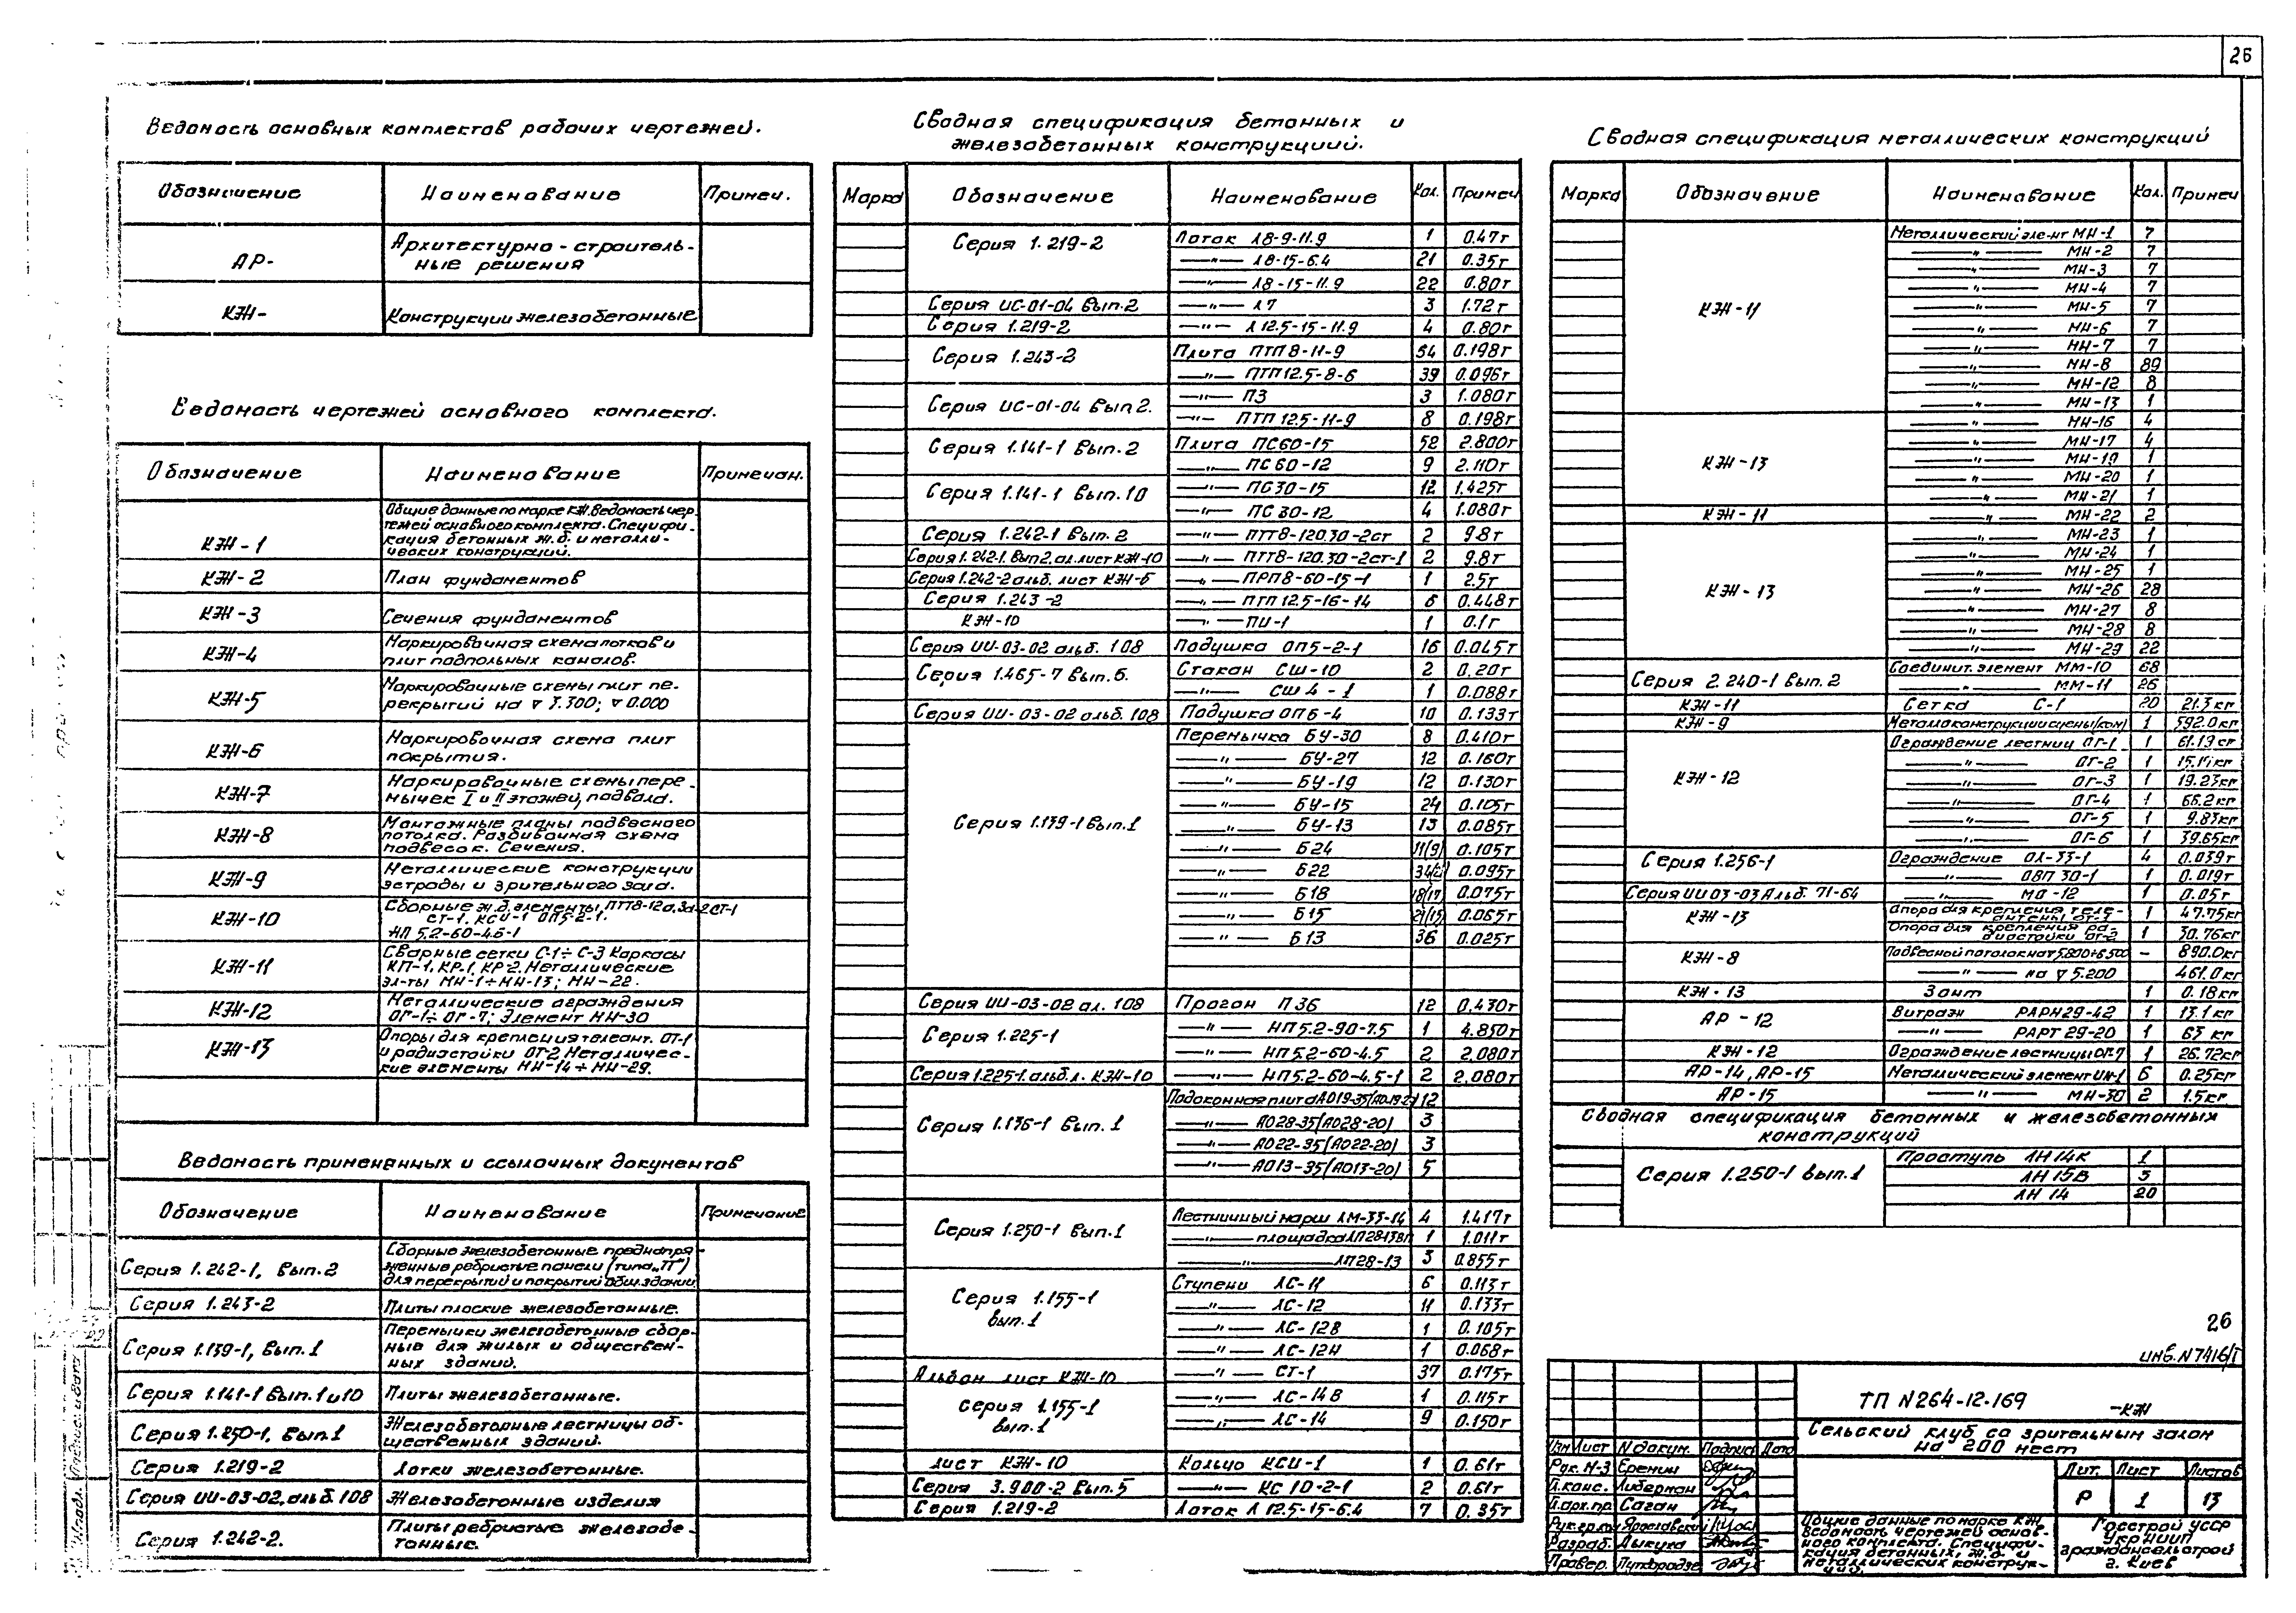 26
Ведомость основных комплектов рабочих чертежей.
Обозначение Наименование Примеч.
АР- Архитектурно-строитель-
ные решения
КЖ- Конструкции железобетонные
Ведомость чертежей основного комплекта.
Обозначение Наименование Примечан.
КЖ-1 Общие данные по марке КЖ. Ведомость чер-
тежей основного комплекта. Специфи-
кация бетонных ж.б. и металли-
ческих конструкций.
КЖ-2 План фундаментов
КЖ-3 Сечения фундаментов
КЖ-4 Маркировочная схема лотков и
плит подпольных каналов.
КЖ-5 Маркировочные схемы плит пе-
рекрытий на ▽ 3.300; ▽ 0.000
КЖ-6 Маркировочная схема плит
покрытия.
КЖ-7 Маркировочные схемы пере-
мычек I и II этажей, подвала.
КЖ-8 Монтажные планы подвесного
потолка. Разбивочная схема
подвесок. Сечения.
КЖ-9 Металлические конструкции
эстрады и зрительного зала.
КЖ-10 Сборные ж.б. элементы ПТТ8-12
СТ-1, КСИ-1 ОП5-2-1.
НП 5.2-60-4.6-1
КЖ-11 Сварные сетки С-1÷С-3 Каркасы
КП-1, КР-1, КР-2. Металлические
эл-ты МН-1÷МН-13; МН-22.
КЖ-12 Металлические ограждения
ОГ-1÷ОГ-7; Элемент МН-30
КЖ-13 Опоры для крепления телеант. ОТ-1
и радиостойки ОТ-2 Металличес-
кие элементы МН-14÷МН-29.
Ведомость примененных и ссылочных документов
Обозначение Наименование Примечание
Серия 1.242-1, вып.2 Сборные железобетонные преднапря-
женные ребристые панели (типа „ТТ")
для перекрытий и покрытий общ. зданий
Серия 1.243-2 Плиты плоские железобетонные.
Серия 1.139-1, вып.1 Перемычки железобетонные сбор-
ные для жилых и обществен-
ных зданий.
Серия 1.141-1 вып.1 и 10 Плиты железобетонные.
Серия 1.250-1, вып.1 Железобетонные лестницы об-
щественных зданий.
Серия 1.219-2 Лотки железобетонные.
Серия ИИ-03-02, альб. 108 Железобетонные изделия
Серия 1.242-2. Плиты ребристые железобе-
тонные.
Сводная спецификация бетонных и
железобетонных конструкциий.
Марка Обозначение Наименование Кол. Примеч
Серия 1.219-2 Лоток Л8-9-11.9 1 0.47т
—"— Л8-15-6.4 21 0.35т
—"— Л8-15-11.9 22 0.80т
Серия ИС-01-04 Вып.2 —"— Л7 3 1.72т
Серия 1.219-2 —"— Л 12.5-15-11.9 4 0.80т
Серия 1.243-2 Плита ПТП 8-11-9 54 0.198т
—"— ПТП12.5-8-6 39 0.096т
Серия ИС-01-04 Вып 2. —"— П3 3 1.080т
—"— ПТП 12.5-11-9 8 0.198т
Серия 1.141-1 Вып.2 Плита ПС60-15 52 2.800т
—"— ПС60-12 9 2.110т
Серия 1.141-1 Вып.10 —"— ПС30-15 12 1.425т
—"— ПС 30-12 4 1.080т
Серия 1.242-1 Вып.2 —"— ПТТ8-120.30-2ст 2 9.8т
Серия 1.242-1. Вып2. ал. лист КЖ-10 —"— ПТТ8-120.30-2ст-1 2 9.8т
Серия 1.242-2 альб. лист КЖ-6 —"— ПРП8-60-15-1 1 2.5т
Серия 1.243-2 —"— ПТП 12.5-16-14 6 0.448т
КЖ-10 —"— ПИ-1 1 0.1т
Серия ИИ-03-02 альб. 108 Подушка ОП5-2-1 16 0.045т
Серия 1.465-7 вып.6. Стакан СШ-10 2 0.20т
—"— СШ 4-1 1 0.088т
Серия ИИ-03-02 альб. 108 Подушка ОП6-4 10 0.133т
Серия 1.139-1 вып.1 Перемычка БУ-30 8 0.410т
—"— БУ-27 12 0.160т
—"— БУ-19 12 0.130т
—"— БУ-15 24 0.105т
—"— БУ-13 13 0.085т
—"— Б24 11(9) 0.105т
—"— Б22 0.095т
—"— Б18 18(17) 0.075т
—"— Б15 21(15) 0.065т
—"— Б13 36 0.025т
Серия ИИ-03-02 ал. 108 Прогон П36 12 0.430т
Серия 1.225-1 —"— НП5.2-90-7.5 1 4.850т
—"— НП5.2-60-4.5 2 2.080т
Серия 1.225-1. альб.л. КЖ-10 —"— НП5.2-60-4.5-1 2 2.080т
Серия 1.136-1 Вып.1 Подоконная плита АО19-35(АО19-2) 12
—"— АО28-35(АО28-20) 3
—"— АО22-35(АО22-20) 3
—"— АО13-35(АО13-20) 5
Серия 1.250-1 Вып.1 Лестничный марш ЛМ-33-14 4 1.417т
—"— площадка ЛП28-13вп 1 1.011т
—"— ЛП28-13 3 0.855т
Серия 1.155-1
вып.1 Ступени ЛС-11 6 0.113т
—"— ЛС-12 11 0.133т
—"— ЛС-12В 1 0.105т
—"— ЛС-12Н 1 0.068т
Альбом лист КЖ-10 —"— СТ-1 37 0.175т
Серия 1.155-1
вып.1 —"— ЛС-14В 1 0.115т
—"— ЛС-14 9 0.150т
лист КЖ-10 Кольцо КСИ-1 1 0.61т
Серия 3.900-2 Вып.5 —"— КС 10-2-1 2 0.61т
Серия 1.219-2 Лоток Л 12.5-15-6.4 7 0.35т
Сводная спецификация металлических конструкций
Марка Обозначение Наименование Кол. Примеч
КЖ-11 Металлический эле-нт МН-1 7
—"— МН-2 7
—"— МН-3 7
—"— МН-4 7
—"— МН-5 7
—"— МН-6 7
—"— МН-7 7
—"— МН-8 89
—"— МН-12 8
—"— МН-13 1
КЖ-13 —"— МН-16 4
—"— МН-17 4
—"— МН-19 1
—"— МН-20 1
—"— МН-21 1
КЖ-11 —"— МН-22 2
КЖ-13 —"— МН-23 1
—"— МН-24 1
—"— МН-25 1
—"— МН-26 28
—"— МН-27 8
—"— МН-28 8
—"— МН-29 22
Серия 2.240-1 Вып.2 Соединит. элемент ММ-10 68
—"— ММ-11 26
КЖ-11 Сетка С-1 20 21.3кг
КЖ-9 Металлоконструкции сцены(ком) 1 592.0кг
КЖ-12 Ограждение лестниц ОГ-1 1 61.19кг
—"— ОГ-2 1
—"— ОГ-3 1 19.23кг
—"— ОГ-4 1 66.2кг
—"— ОГ-5 1 9.83кг
—"— ОГ-6 1 39.65кг
Серия 1.256-1 Ограждение ОЛ-33-1 4 0.039т
—"— ОВП 30-1 1 0.019т
Серия ИИ03-03 Альб. 71-64 —"— МО-12 1 0.05т
КЖ-13 Опора для крепления теле-
антены ОТ-1 1 47.75кг
Опора для крепления ра-
диостойки ОТ-2 1 30.76кг
КЖ-8 Подвесной потолок на ▽ 5.890÷6.500 – 890.0кг
—"— на ▽ 5.200 461.0кг
КЖ-13 Зонт 1 0.18кг
АР-12 Витраж РАРН29-42 1 13.1кг
—"— РАРТ 29-20 1 63 кг
КЖ-12 Ограждение лестницы ОГ-7 1 26.72кг
АР-14, АР-15 Металлический элемент ИМ-1 6 0.25кг
АР-15 —"— МН-30 2 1.5кг
Сводная спецификация бетонных и железобетонных
конструкций
Серия 1.250-1 вып.1 Проступь ЛН14К 1
ЛН15В 3
ЛН 14 20
26
инв. N 7416/I
ТП N264-12-169 -КЖ
Сельский клуб со зрительным залом
на 200 мест
Изм Лист N докум. Подпись Дата
Рук. М-3 Еренин
Гл.конс. Либерман
Гл.арх.пр. Саган
Рук.гр. Ярославский
Разраб. Дыкуха
Провер.
Общие данные по марке КЖ
Ведомость чертежей основ-
ного комплекта. Специфи-
кация бетонных, ж.б. и
металлических конструк-
ций.
Лит. Лист Листов
Р 1 13
Госстрой УССР
УкрНИИП
граждансельстрой
г. Киев